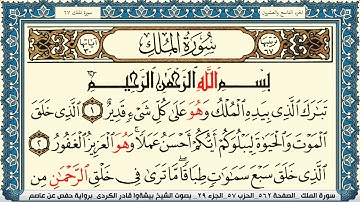 الجزء التاسع والعشرون
سورة الملك ٦٧
ترتيبها ٦٧
سُورَةُ المُلكِ
آياتها ٣٠
بِسْمِ اللَّهِ الرَّحْمَٰنِ الرَّحِيمِ
تَبَٰرَكَ الَّذِي بِيَدِهِ الْمُلْكُ وَهُوَ عَلَىٰ كُلِّ شَيْءٍ قَدِيرٌ ١ الَّذِي خَلَقَ
الْمَوْتَ وَالْحَيَوٰةَ لِيَبْلُوَكُمْ أَيُّكُمْ أَحْسَنُ عَمَلًا ۚ وَهُوَ الْعَزِيزُ الْغَفُورُ ٢
الَّذِي خَلَقَ سَبْعَ سَمَٰوَٰتٍ طِبَاقًا ۖ مَّا تَرَىٰ فِي خَلْقِ الرَّحْمَٰنِ مِن
سورة الملك _ الصفحة ٥٦٢ _ الحزب ٥٧ _ الجزء ٢٩ _ بصوت الشيخ بيشةوا قادر الكردي _ برواية حفص عن عاصم